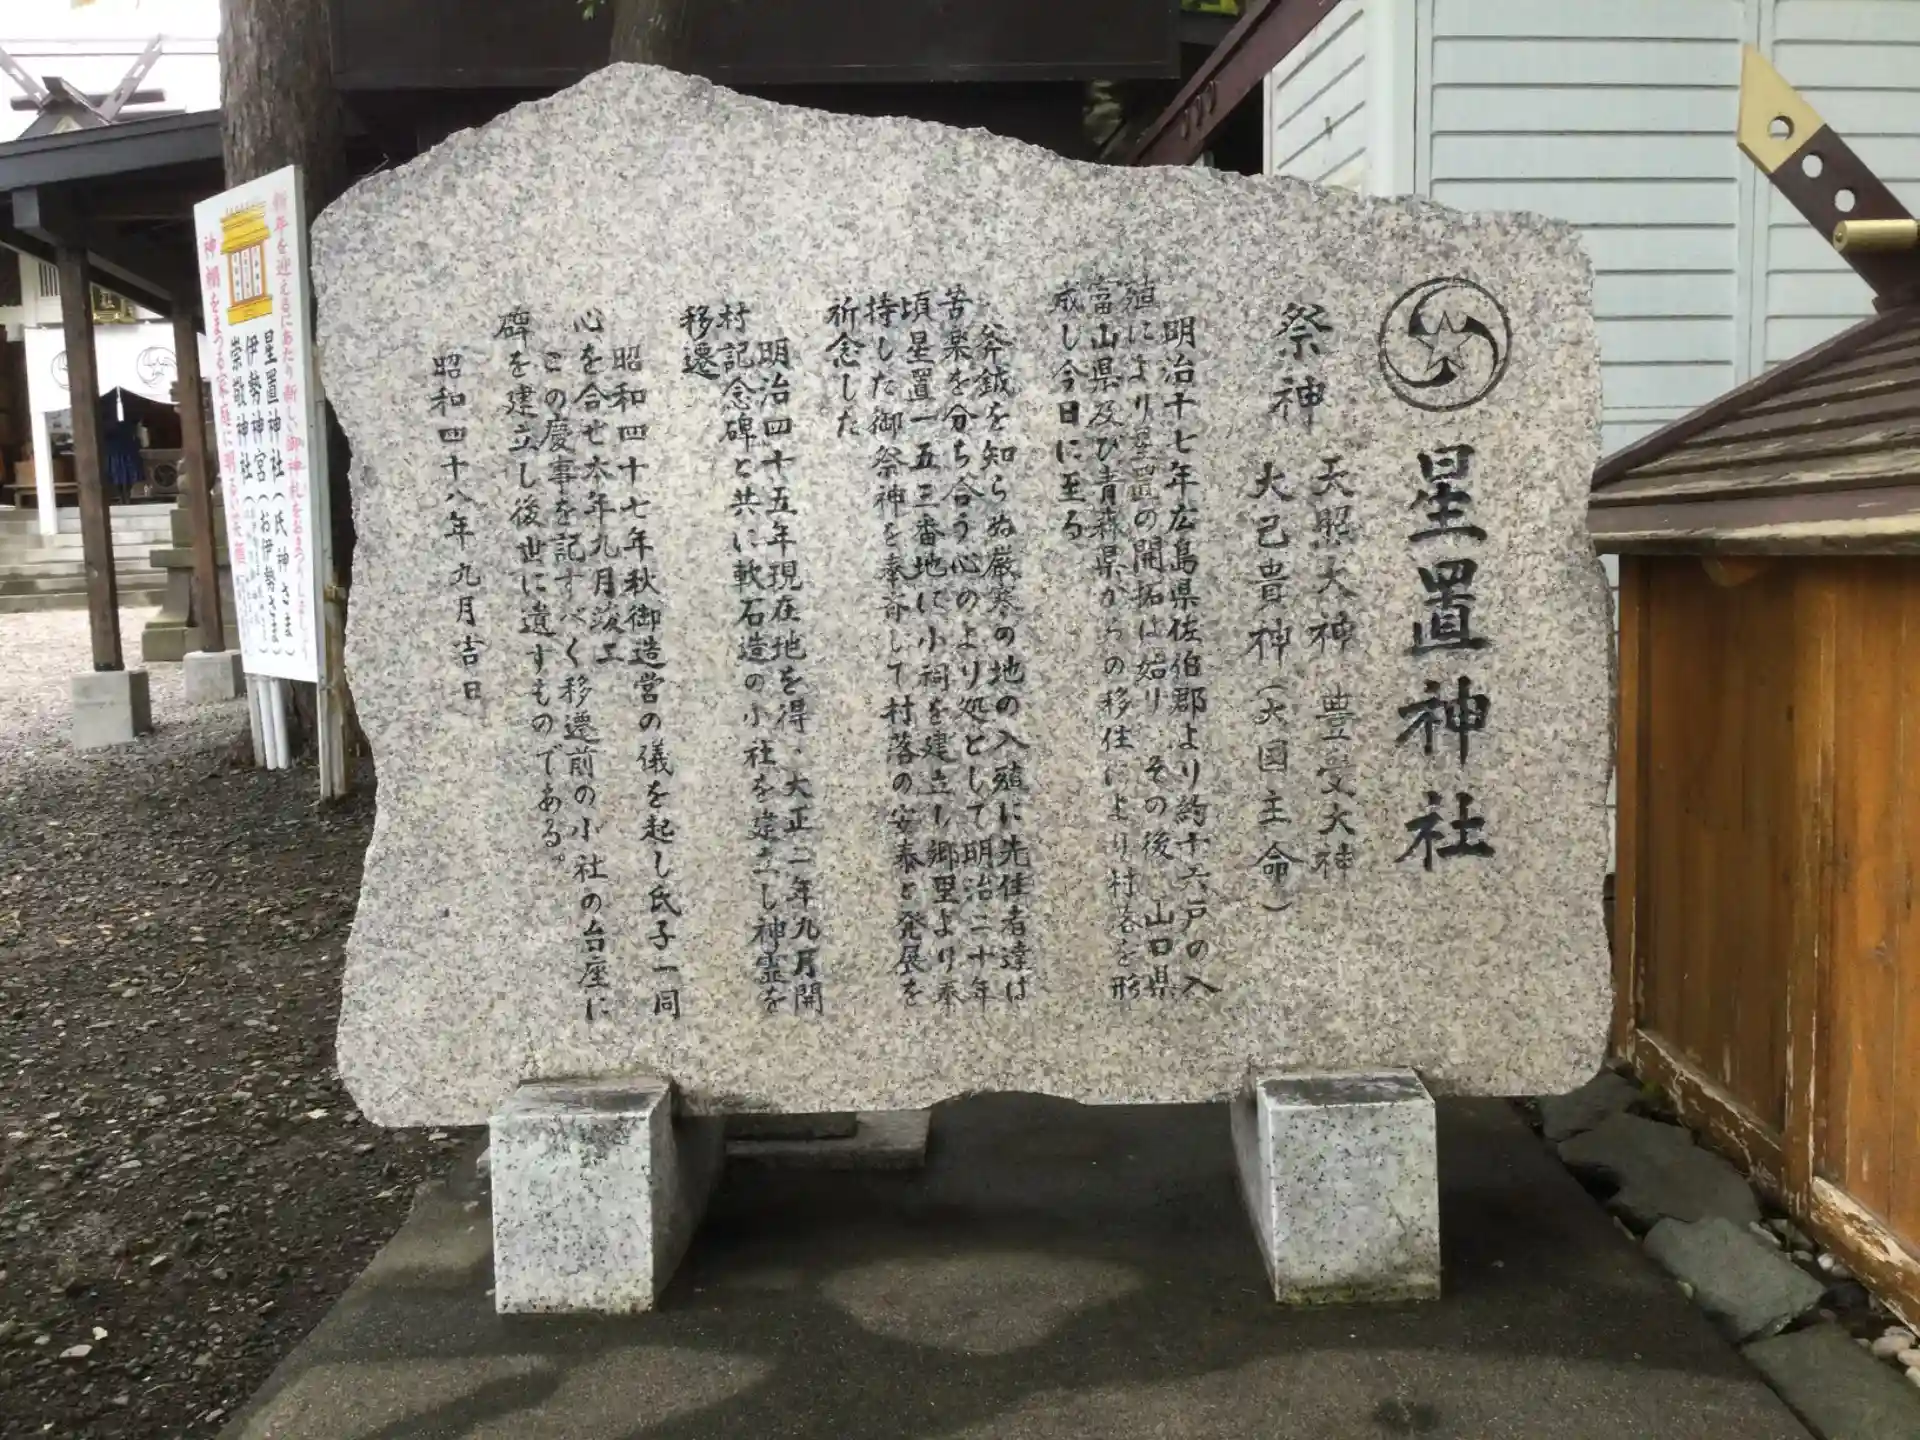 星置神社
祭神 天照大神 豊受大神
大己貴神(大国主命)
明治十七年広島県佐伯郡より約十六戸の入
殖により星置の開拓は始り、その後、山口県
富山県及び青森県からの移住により村落を形
成し今日に至る
斧鉞を知らぬ厳寒の地の入殖に先住者達は
苦楽を分ち合う心のより処として明治二十年
頃星置一五三番地に小祠を建立し郷里より奉
持した御祭神を奉斎して村落の安泰と発展を
祈念した
明治四十五年現在地を得、大正二年九月開
村記念碑と共に軟石造の小社を建立し神霊を
移遷
昭和四十七年秋御造営の儀を起し氏子一同
心を合せ本年九月竣工
この慶事を記すべく移遷前の小社の台座に
碑を建立し後世に遺すものである。
昭和四十八年九月吉日
新年を迎えるにあたり新しい御神札をおまつりしましょう
星置神社(氏神さま)
伊勢神宮(お伊勢さま)
崇敬神社
神棚をまつる家庭に明るい笑顔